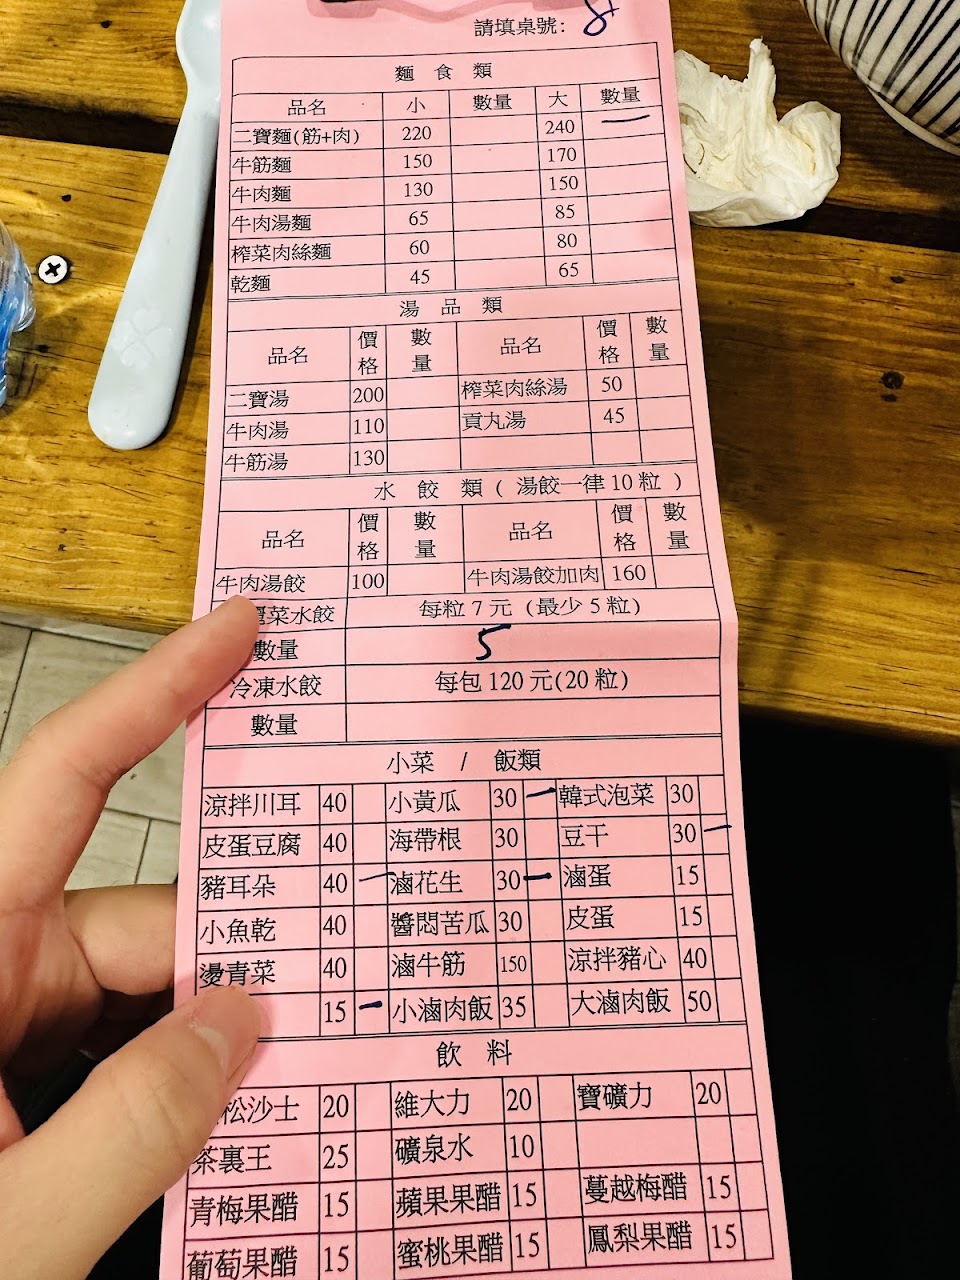 請填桌號: 8
麵 食 類
品名 小 數量 大 數量
二寶麵(筋+肉) 220 240 一
牛筋麵 150 170
牛肉麵 130 150
牛肉湯麵 65 85
榨菜肉絲麵 60 80
乾麵 45 65
湯 品 類
品名 價格 數量 品名 價格 數量
二寶湯 200 榨菜肉絲湯 50
牛肉湯 110 貢丸湯 45
牛筋湯 130
水 餃 類 ( 湯餃一律10粒 )
品名 價格 數量 品名 價格 數量
牛肉湯餃 100 牛肉湯餃加肉 160
菜水餃 每粒7元 (最少5粒)
數量 5
冷凍水餃 每包120元(20粒)
數量
小菜 / 飯類
涼拌川耳 40 小黃瓜 30 一 韓式泡菜 30
皮蛋豆腐 40 海帶根 30 豆干 30 一
豬耳朵 40 一 滷花生 30 一 滷蛋 15
小魚乾 40 醬悶苦瓜 30 皮蛋 15
燙青菜 40 滷牛筋 150 涼拌豬心 40
15 一 小滷肉飯 35 大滷肉飯 50
飲 料
松沙士 20 維大力 20 寶礦力 20
茶裏王 25 礦泉水 10
青梅果醋 15 蘋果果醋 15 蔓越梅醋 15
葡萄果醋 15 蜜桃果醋 15 鳳梨果醋 15